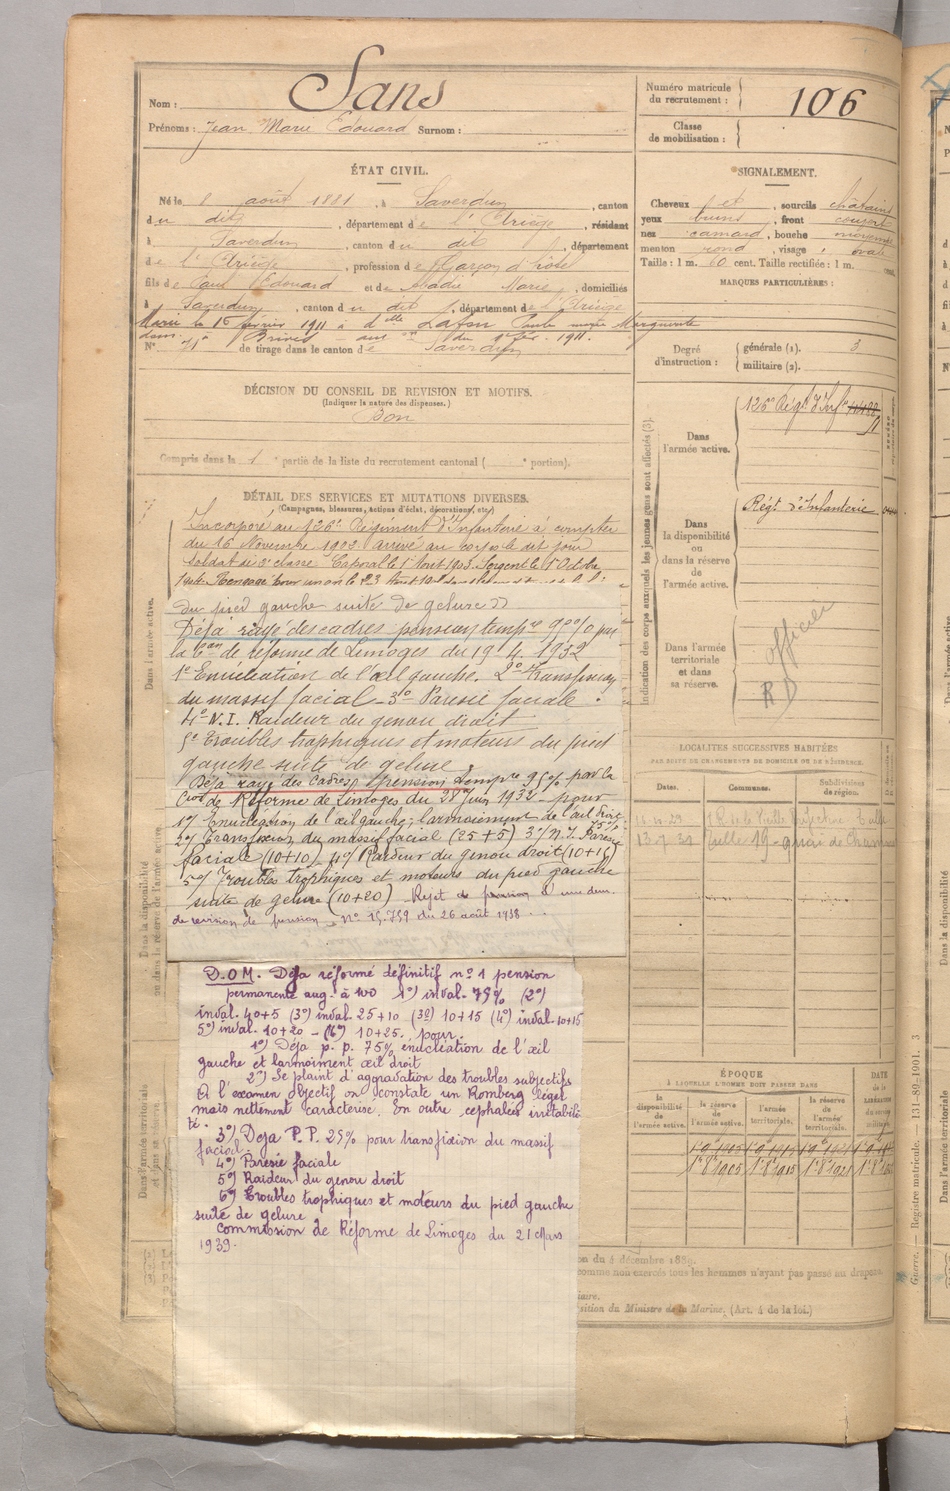 Nom : Sans
Prénoms : Jean Marie Edouard Surnom :
Numéro matricule du recrutement : 106
Classe de mobilisation :
ÉTAT CIVIL.
Né le 8 août 1881, à Saverdun, canton
du dit, département de l'Ariège, résidant
à Saverdun, canton du dit, département
de l'Ariège, profession de Garçon d'hôtel
fils de Paul Edouard et de Abadie Marie, domiciliés
à Saverdun, canton du dit, département de l'Ariège
Marié le 16 février 1911 à dlle Lafon Marguerite
dom. Brives 1911.
N° 71 de tirage dans le canton de Saverdun
SIGNALEMENT.
Cheveux sourcils châtains
yeux bruns, front couvert
nez camard, bouche moyenne
menton rond, visage ovale
Taille : 1 m. 60 cent. Taille rectifiée : 1 m. cent.
MARQUES PARTICULIÈRES :
Degré d'instruction : générale (1). 3
militaire (2).
DÉCISION DU CONSEIL DE REVISION ET MOTIFS.
(Indiquer la nature des dispenses.)
Bon
Compris dans la 1e partie de la liste du recrutement cantonal ( e portion).
DÉTAIL DES SERVICES ET MUTATIONS DIVERSES.
(Campagnes, blessures, actions d'éclat, décorations, etc.)
Incorporé au 126e Régiment d'Infanterie à compter
du 16 Novembre 1902 arrivé au corps le dit jour
Soldat de 2e classe Caporal le 1er Août 1903. Sergent le 1er Octobre
du pied gauche suite de gelure
Déjà rayé des cadres pension tempre 90% par
la Con de réforme de Limoges du 19.4.1932
1° Enucléation de l'œil gauche. 2° transfixion
du massif facial - 3° Parésie faciale.
4° N.I. Raideur du genou droit
5° Troubles trophiques et moteurs du pied
gauche suite de gelure.
Déjà rayé des Cadres, pension tempre 95% par la
Cion de Réforme de Limoges du 28 Juin 1932 - pour
1°/ Enucléation de l'œil gauche; larmoiement de l'œil droit
75%
2°/ Transfixion du massif facial (25+5) 3°/ N.I. Parésie
faciale (10+10) 4°/ Raideur du genou droit (10+15)
5°/ Troubles trophiques et moteurs du pied gauche
suite de gelure (10+20) Rejet de pension d'une dem.
de revision de pension N° 15.759 du 26 août 1938
D.O.M. Déja réformé définitif n° 1 pension
permanente aug. à 100 1°) inval. 75% (2°)
inval. 40+5 (3°) inval. 25+10 (3°) 10+15 (4°) inval. 10+15
5°) inval. 10+20 - (6°) 10+25. pour.
1°) Déja p. p. 75% enucléation de l'œil
gauche et larmoiment œil droit
2°) Se plaint d'aggravation des troubles subjectifs
A l'examen objectif on constate un Romberg léger
mais nettement caractérisé. En outre, céphalées irritabili
té.
3°) Déja P.P. 25% pour transfixion du massif
facial
4°) Parésie faciale
5°) Raideur du genou droit
6°) Troubles trophiques et moteurs du pied gauche
suite de gelure
Commission de Réforme de Limoges du 21 Mars
1939.
Indication des corps auxquels les jeunes gens sont affectés (3).
Dans l'armée active. 126e Régt d'Infie
Dans la disponibilité ou dans la réserve de l'armée active. Régt d'Infanterie
Dans l'armée territoriale et dans sa réserve.
officier
RD
LOCALITÉS SUCCESSIVES HABITÉES
PAR SUITE DE CHANGEMENTS DE DOMICILE OU DE RÉSIDENCE.
Dates. Communes. Subdivisions de région.
R. de la Vieille Préfecture Tulle
Tulle 19 - quai de
ÉPOQUE
À LAQUELLE L'HOMME DOIT PASSER DANS
DATE de la LIBÉRATION du service militaire.
la disponibilité de l'armée active.
la réserve de l'armée active.
l'armée territoriale.
la réserve de l'armée territoriale.
1er 8bre 1905 1er 8bre 1915 1er 8bre 1921
on du 4 décembre 1889.
comme non exercés tous les hommes n'ayant pas passé au drapeau
iaire.
sition du Ministre de la Marine. (Art. 4 de la loi.)
Dans l'armée active.
Dans la disponibilité ou dans la réserve de l'armée active.
Dans l'armée territoriale et dans sa réserve.
Guerre. — Registre matricule. — 131-89-1901. 3